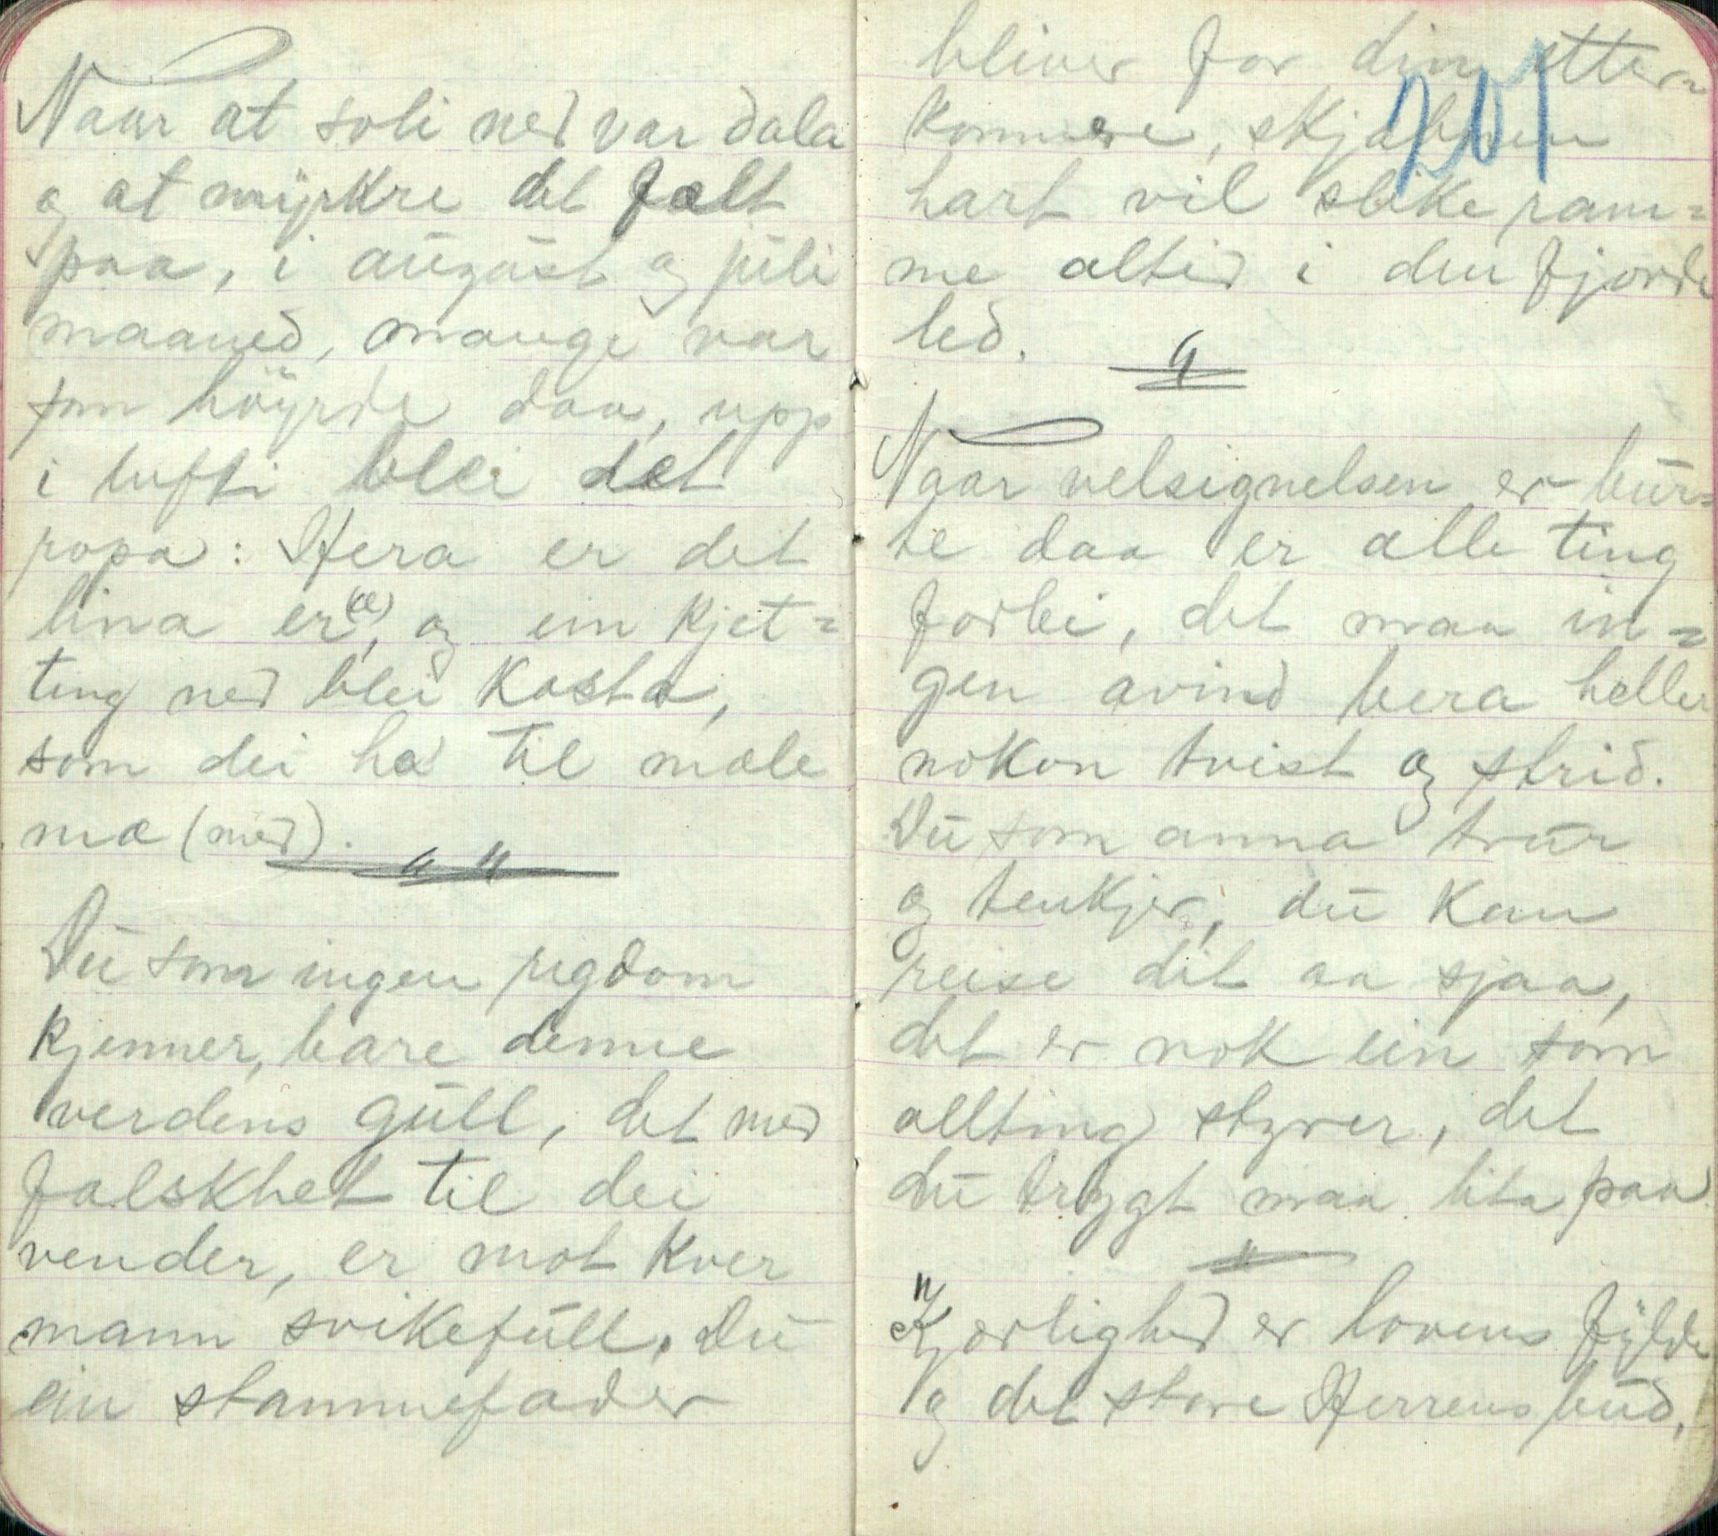 Naar at soli ned var dala
og at myrkre det falt
paa, i august og juli
maaned, mange var
som höyrde daa, upp
i lufti blei det
ropa: Hera er det
lina er(æ), og ein kjet=
ting ned blei kasta,
som dei ha til male
mæ (med).
Du som ingen rigdom
kjenner, bare denne
verdens gull, det med
falskhet til dei
vender, er mot kver
mann svikefull. Du
ein stammefader
bliver for din etter=
kommere, skjæbnen
hart vil slike ram=
me altid i den fjorde
led.
201
Naar velsignelsen er bur=
te daa er alle ting
forbi, det maa in=
gen avind bera heller
nokon tvist og strid.
Du som anna trur
og tenkjer, du kan
reise dit aa sjaa,
det er nok ein som
allting styrer, det
du trygt maa lita paa
"Kjærlighed er lovens fylde
og det store Herrens bud,